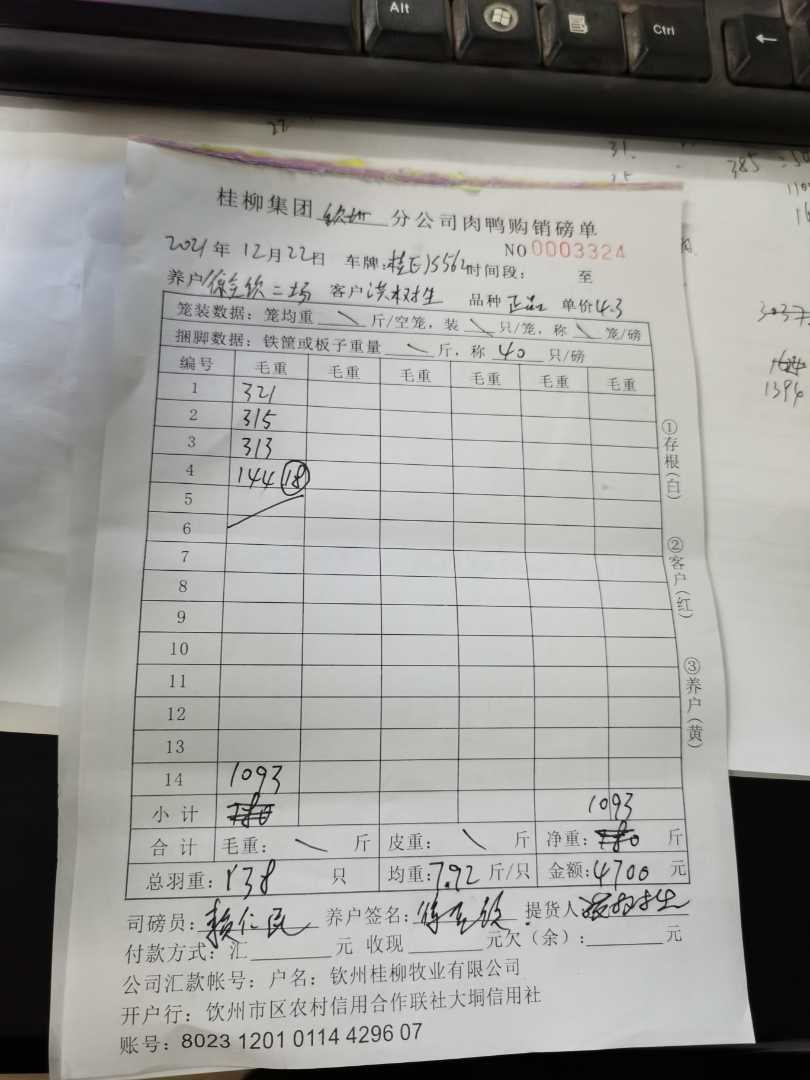 Alt
Ctrl
22
31.
385
1394
桂柳集团 钦州 分公司肉鸭购销磅单
NO 0003324
2021年 12月22日 车牌:桂E15562 时间段: 至
养户 徐克钦二场 客户 洪树生 品种 正品 单价4.3
笼装数据:笼均重 \ 斤/空笼,装 \ 只/笼,称 \ 笼/磅
捆脚数据:铁筐或板子重量 \ 斤,称 40 只/磅
编号 毛重 毛重 毛重 毛重 毛重 毛重
1 321
2 315
3 313
4 144 18
5
6
7
8
9
10
11
12
13
14 1093
小计 780 1093
合计 毛重: \ 斤 皮重: \ 斤 净重: 780 斤
总羽重: 138 只 均重:7.92 斤/只 金额:4700 元
司磅员: 赖仁民 养户签名: 徐克钦 提货人 洪树生
付款方式:汇 元 收现 元欠(余): 元
公司汇款帐号:户名:钦州桂柳牧业有限公司
开户行:钦州市区农村信用合作联社大垌信用社
账号:8023 1201 0114 4296 07
①存根(白)
②客户(红)
③养户(黄)